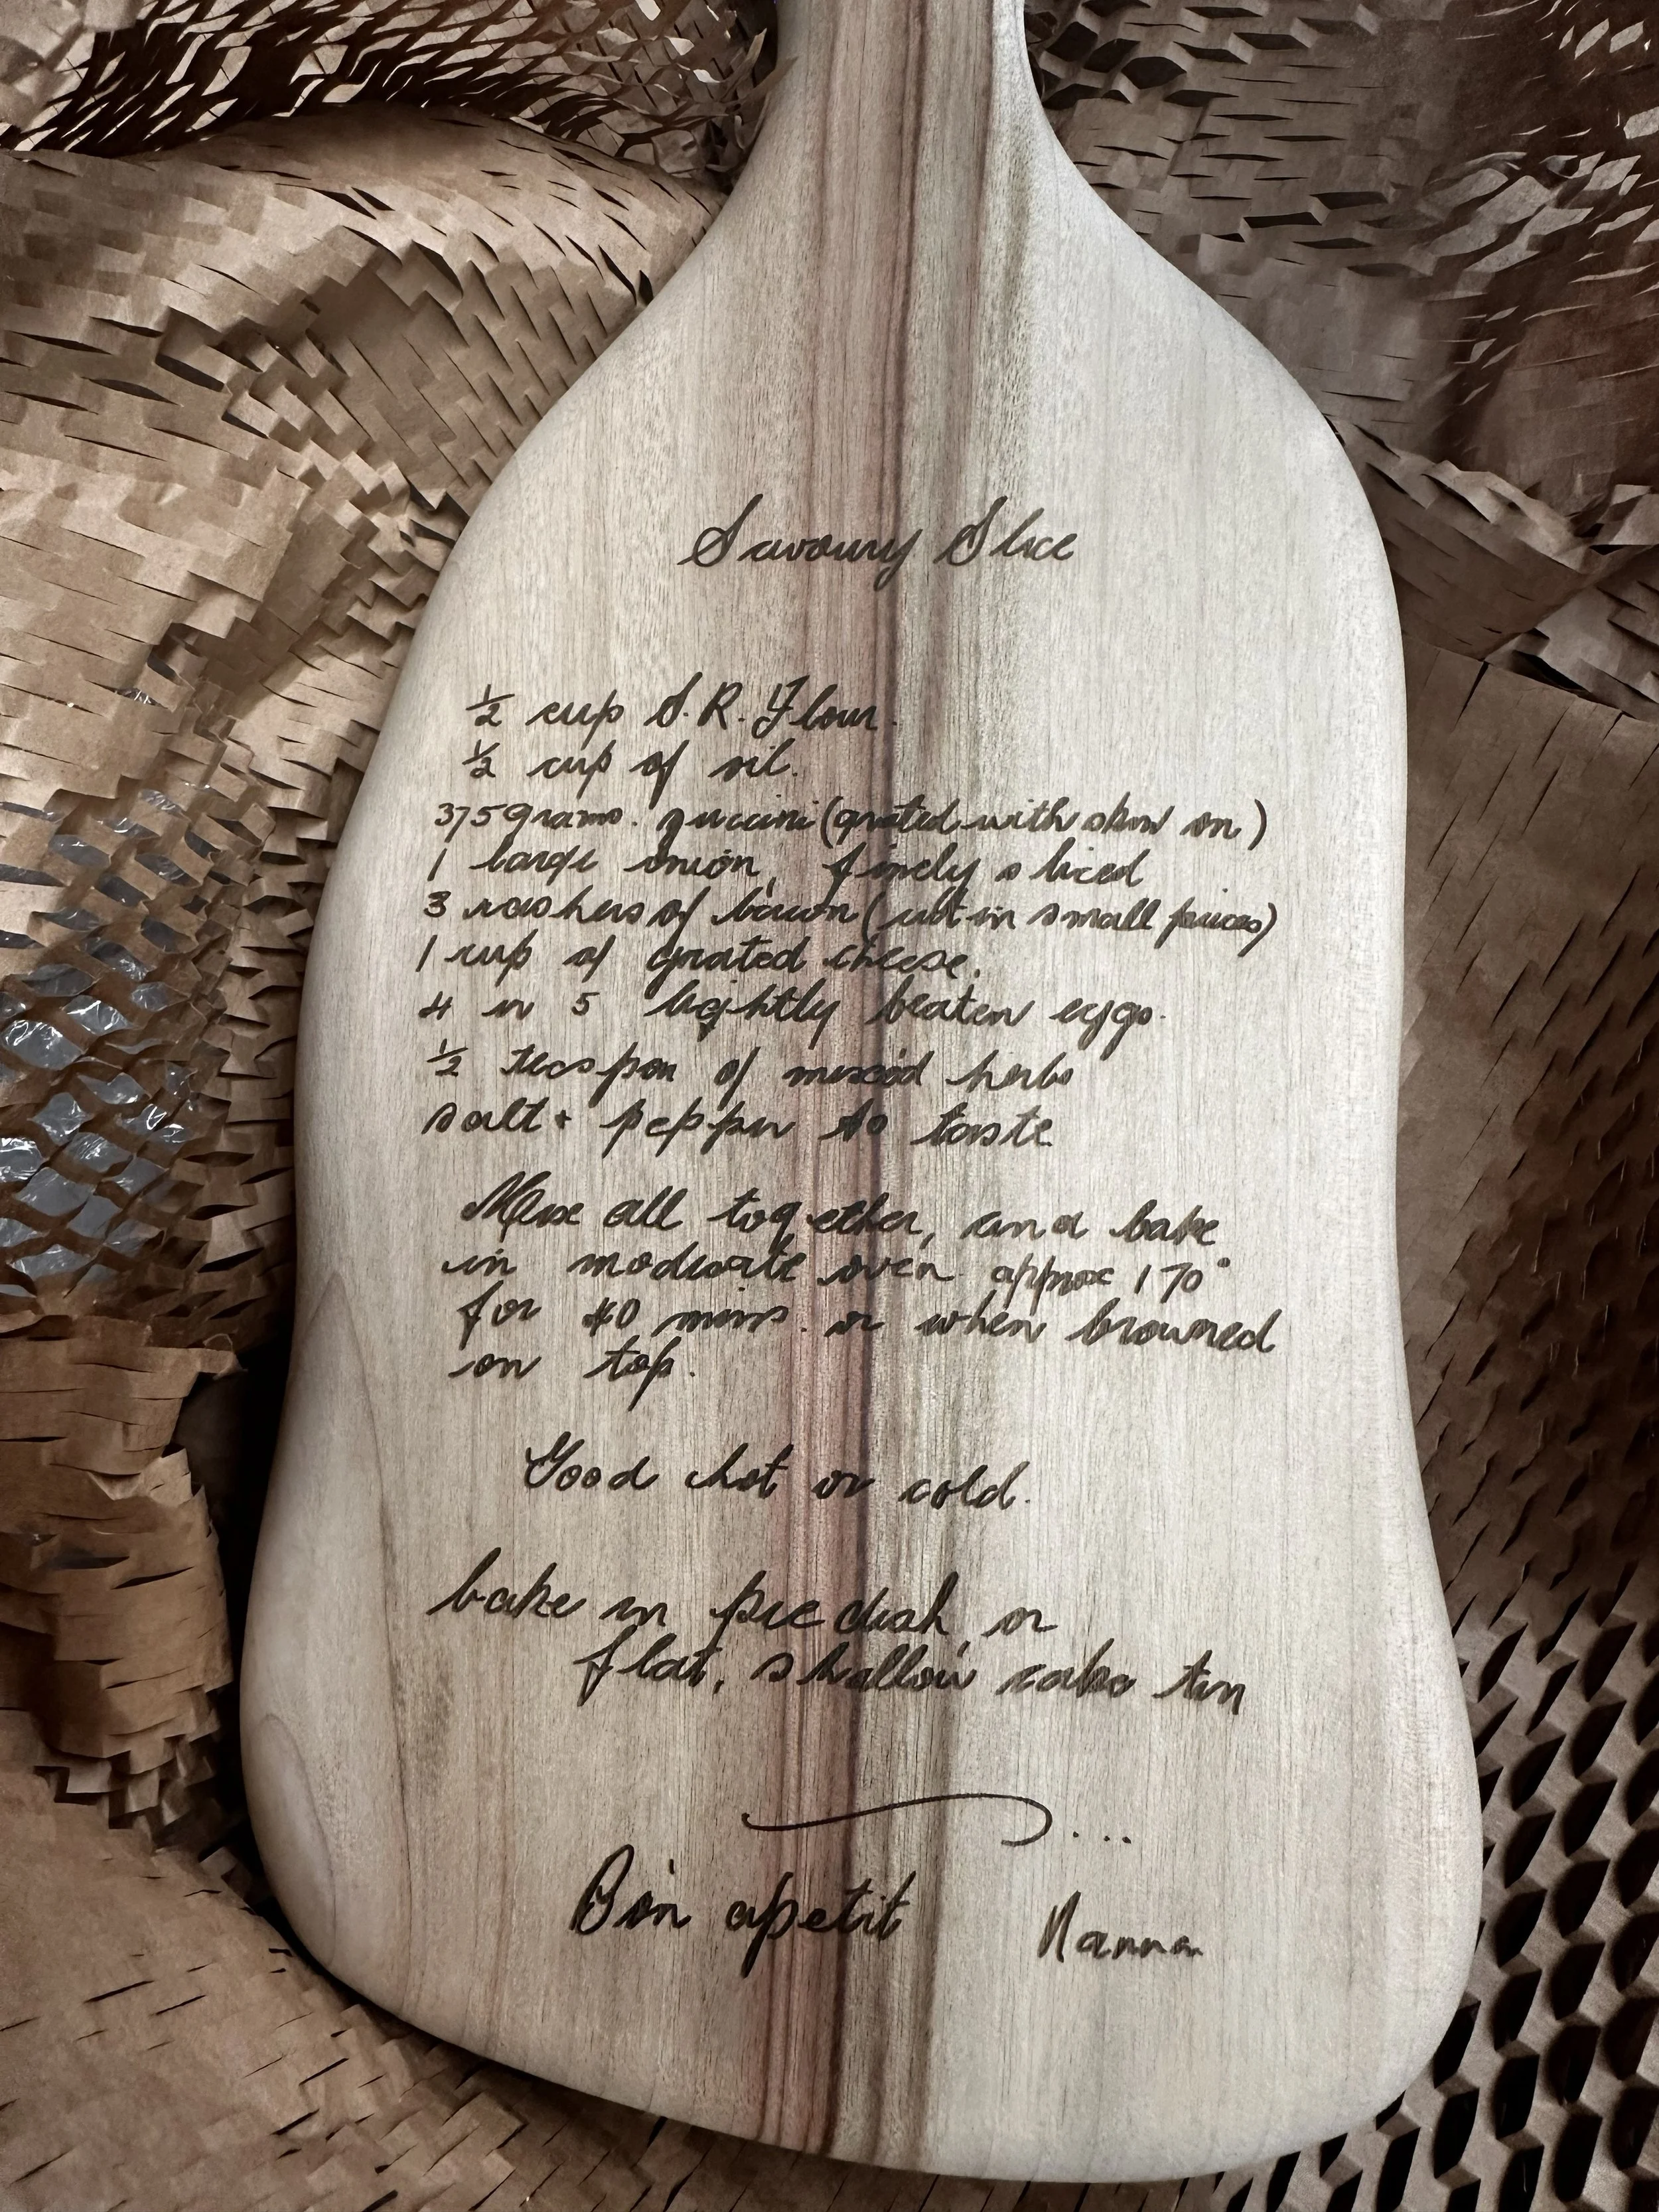 Savoury Slice
½ cup S.R. Flour.
½ cup of oil.
375 grams. zuccini (grated with skin on)
1 large onion, finely sliced
3 rashers of bacon (cut in small pieces)
1 cup of grated cheese.
4 or 5 lightly beaten eggs.
½ teaspon of mixed herbs
salt + pepper to taste
Mix all together, and bake
in moderate oven approx 170°
for 40 mins. or when browned
on top.
Good hot or cold.
bake in pie dish, or
flat, shallow cake tin
....
Bon apetit
Nanna